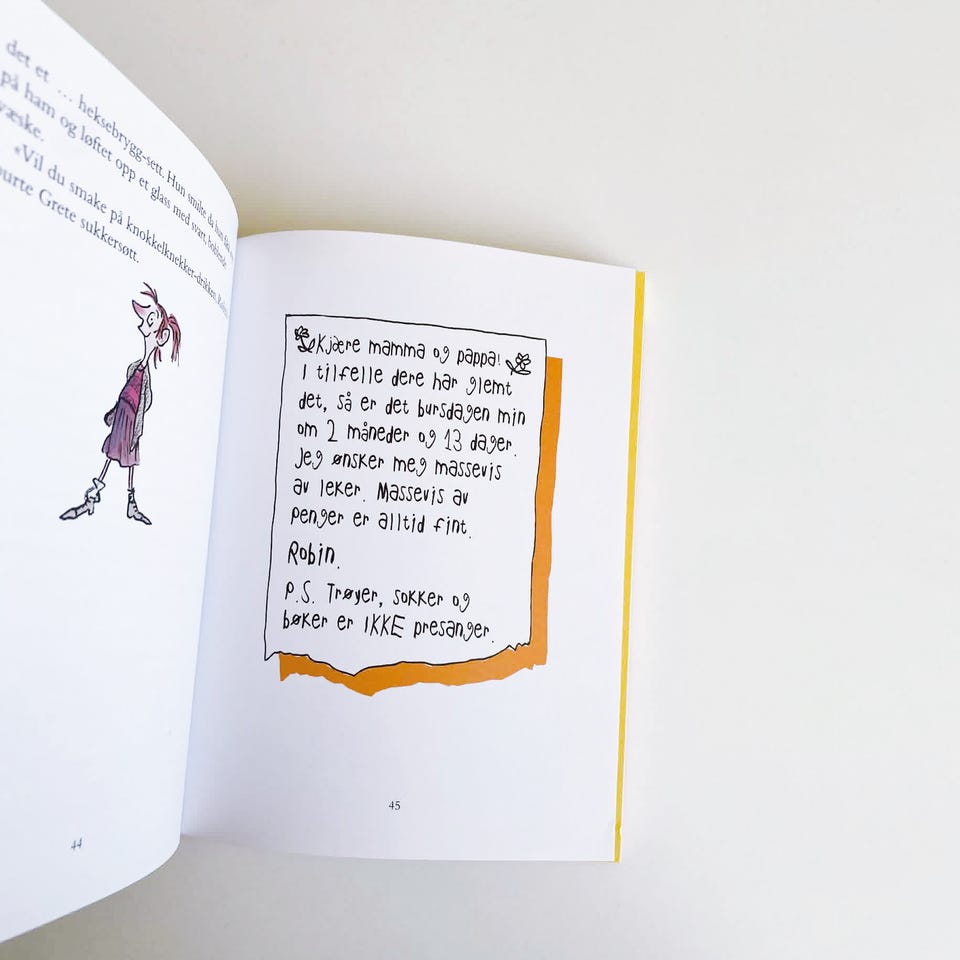 det et ... heksebrygg-sett. Hun smilte da hun
på ham og løftet opp et glass med svart, boblende
væske.
«Vil du smake på knokkelknekker-drikken,
purte Grete sukkersøtt.
44
Kjære mamma og pappa!
I tilfelle dere har glemt
det, så er det bursdagen min
om 2 måneder og 13 dager.
Jeg ønsker meg massevis
av leker. Massevis av
penger er alltid fint.
Robin.
P.S. Trøyer, sokker og
bøker er IKKE presanger.
45